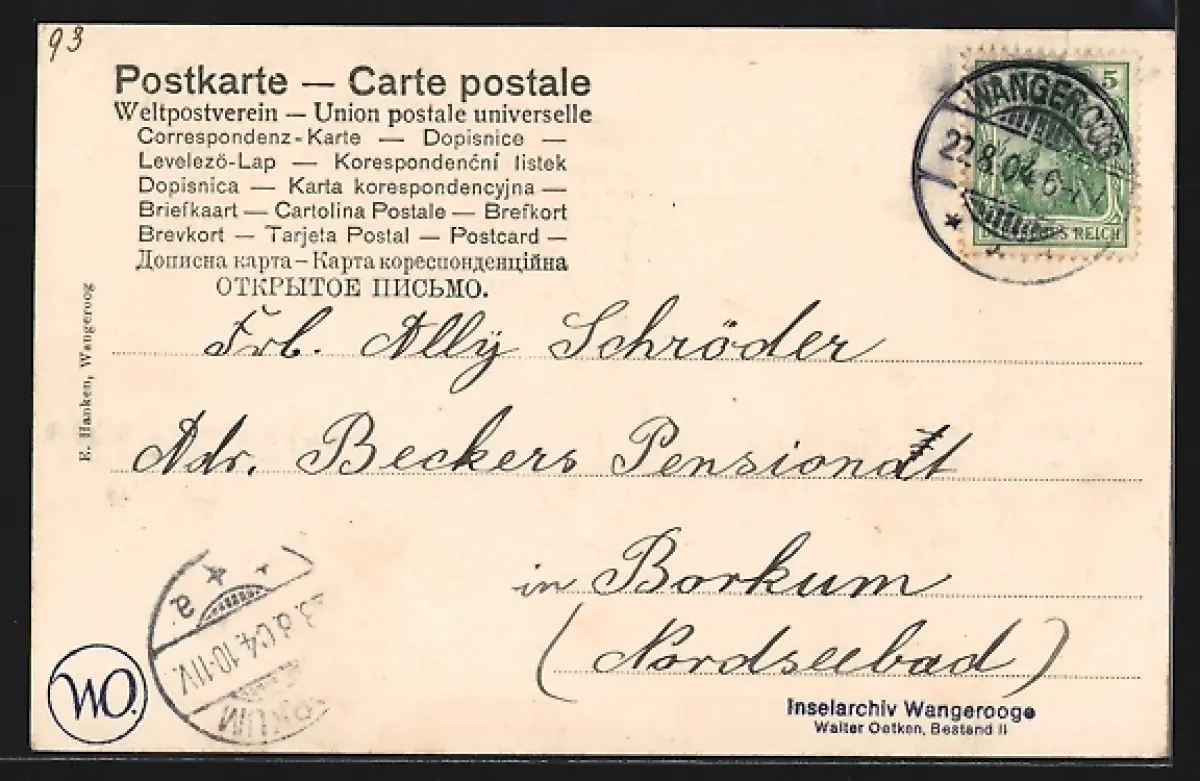 93
Postkarte — Carte postale
Weltpostverein — Union postale universelle
Correspondenz-Karte — Dopisnice —
Levelező-Lap — Korespondenční listek
Dopisnica — Karta korespondencyjna —
Briefkaart — Cartolina Postale — Brefkort
Brevkort — Tarjeta Postal — Postcard —
Дописна карта – Карта кореспонденційна
ОТКРЫТОЕ ПИСЬМО.
5
REICH
WANGEROOG
22.8.04.6-
E. Hanken, Wangeroog
Frl. Ally Schröder
Adr. Beckers Pensionat
in Borkum
(Nordseebad)
a.
04.10-11V.
WO.
Inselarchiv Wangerooge
Walter Oetken, Bestand II